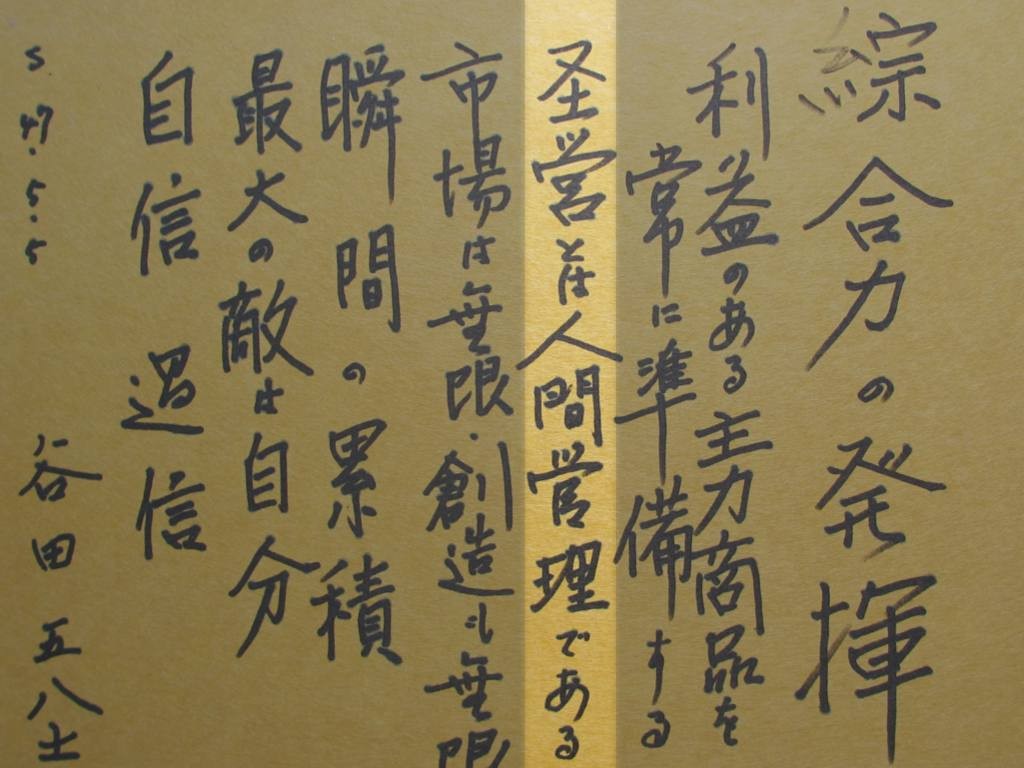 綜合力の発揮
利益のある主力商品を
常に準備する
圣営とは人間営理である
市場は無限・創造も無限
瞬間の累積
最大の敵は自分
自信過信
S.47.5.5
谷田五八士